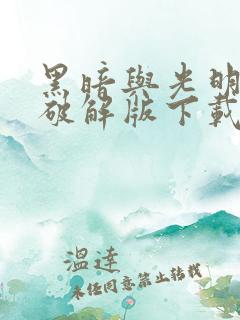 黑暗與光明
破解版下載
溫達
未任同意禁止轉載